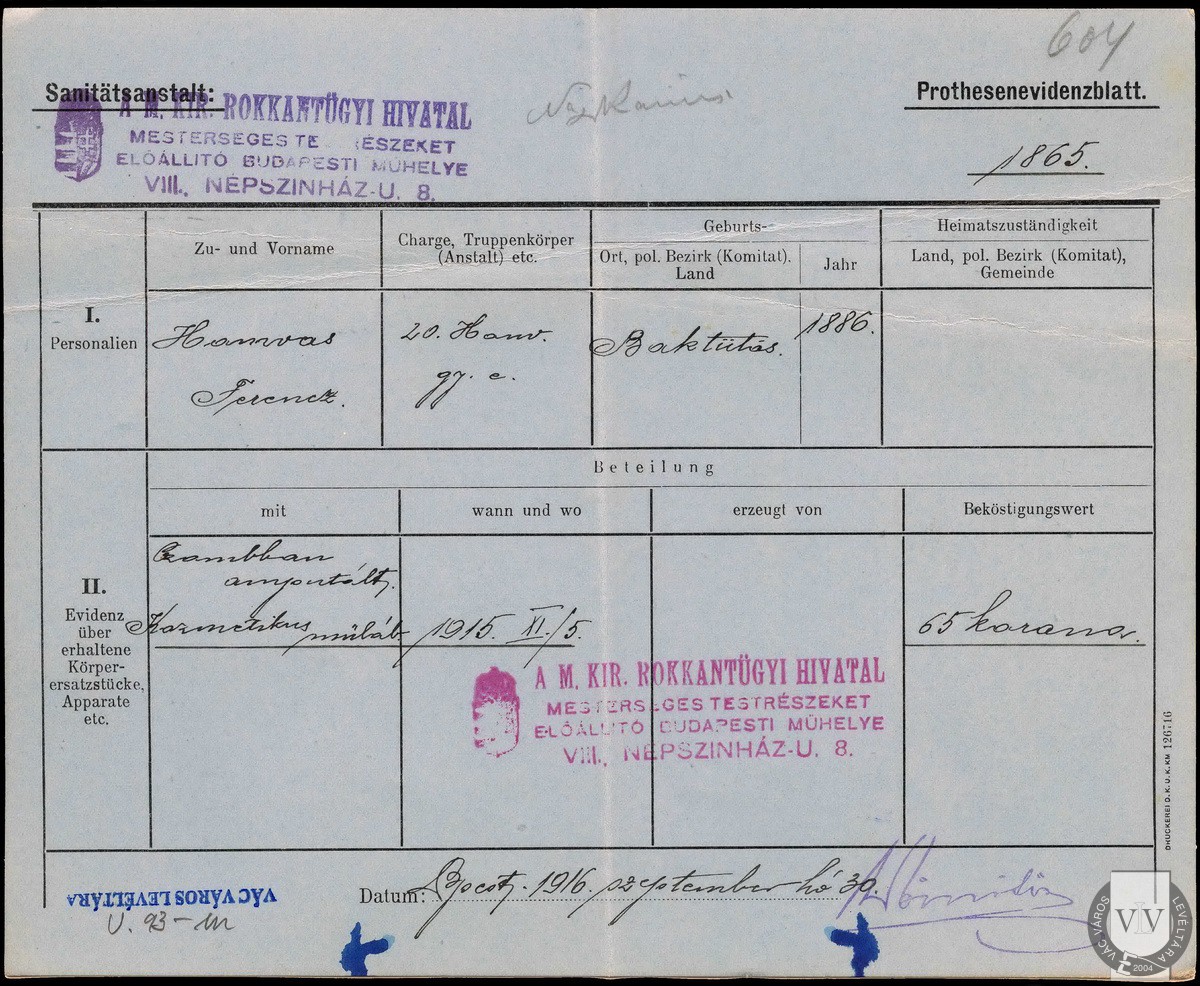 604
Sanitätsanstalt:
Prothesenevidenzblatt.
A M. KIR. ROKKANTÜGYI HIVATAL
MESTERSÉGES TE RÉSZEKET
ELŐÁLLITÓ BUDAPESTI MŰHELYE
VIII., NÉPSZINHÁZ-U. 8.
1865.
Zu- und Vorname
Charge, Truppenkörper
(Anstalt) etc.
Geburts-
Ort, pol. Bezirk (Komitat).
Land
Jahr
Heimatszuständigkeit
Land, pol. Bezirk (Komitat),
Gemeinde
I.
Personalien
Hamvas
Ferencz.
20. Honv.
gy. e.
Baktütős.
1886.
Beteilung
mit
wann und wo
erzeugt von
Beköstigungswert
II.
Evidenz
über
erhaltene
Körper-
ersatzstücke,
Apparate
etc.
Czombban
amputált.
Kozmetikus műláb
1915. XI./5.
65 korona.
A M. KIR. ROKKANTÜGYI HIVATAL
MESTERSÉGES TESTRÉSZEKET
ELŐÁLLITÓ BUDAPESTI MŰHELYE
VIII., NÉPSZINHÁZ-U. 8.
DRUCKEREI D. K. U. K. KM 126716
Datum: 1916. szeptember hó 30.
VÁC VÁROS LEVÉLTÁRA
U. 93-
VÁC VÁROS LEVÉLTÁRA
VL
2004